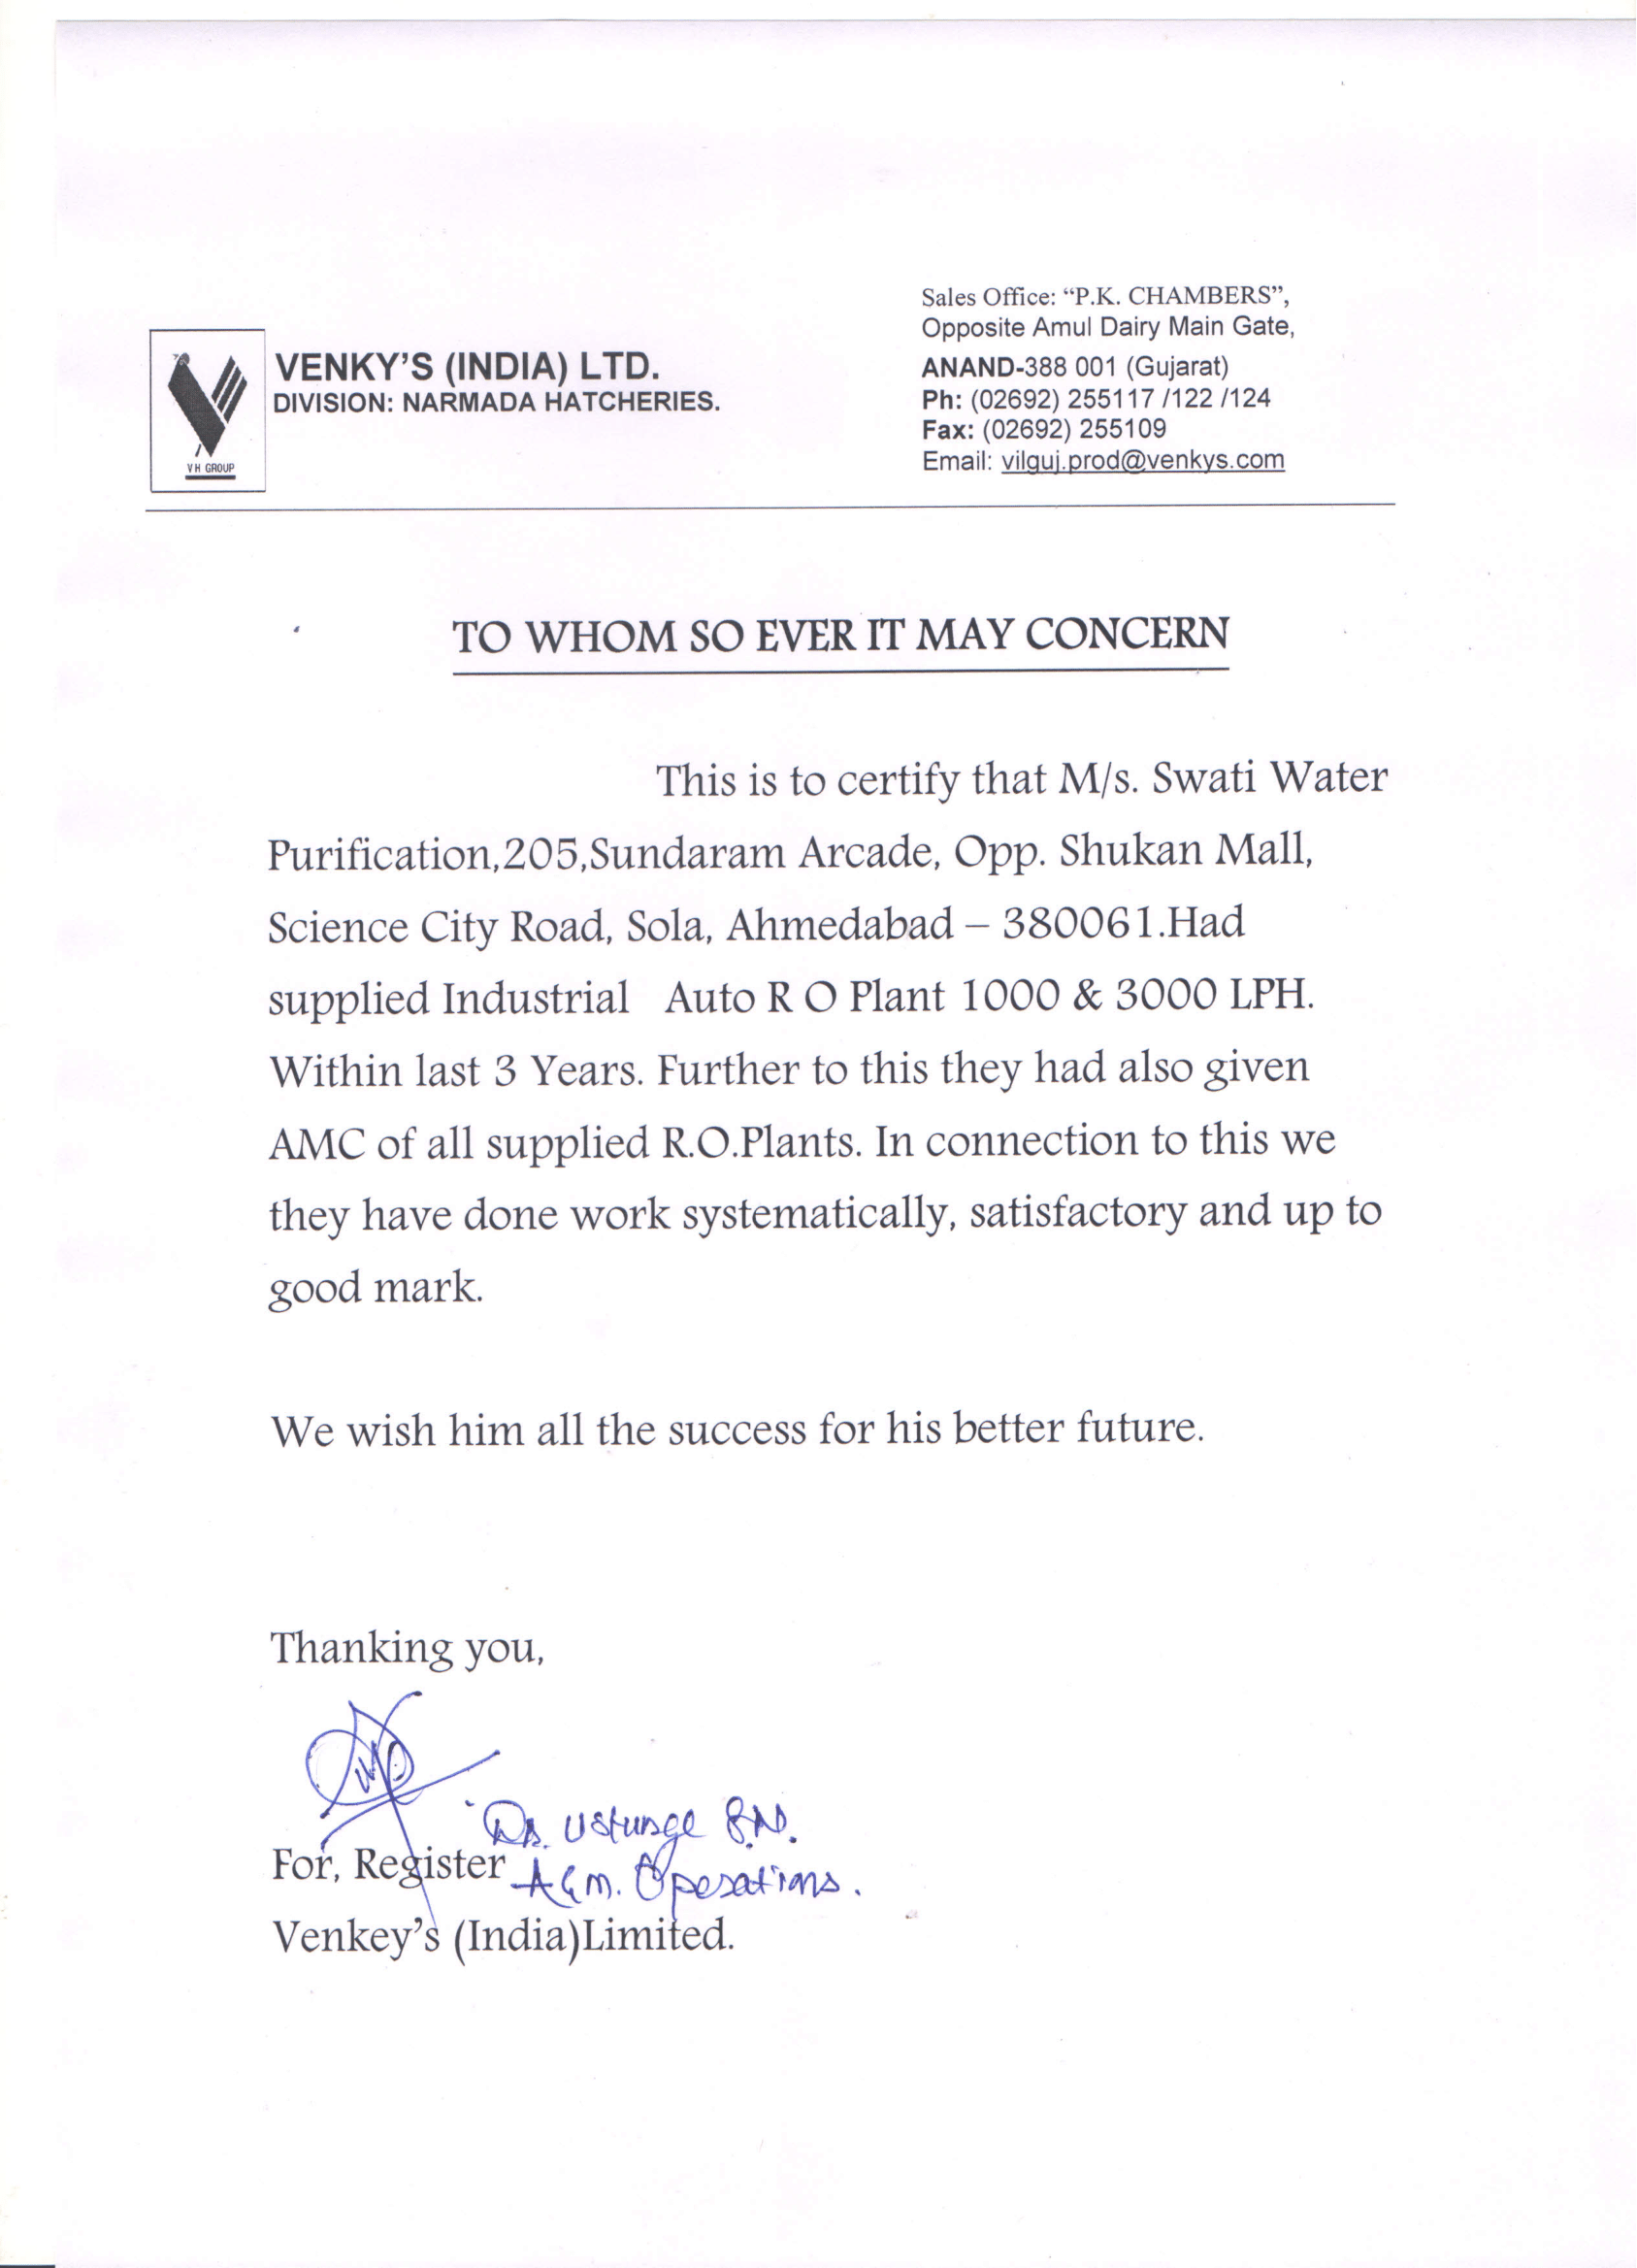 VENKY'S (INDIA) LTD.
DIVISION: NARMADA HATCHERIES.
V H GROUP
Sales Office: “P.K. CHAMBERS”,
Opposite Amul Dairy Main Gate,
ANAND-388 001 (Gujarat)
Ph: (02692) 255117 /122 /124
Fax: (02692) 255109
Email: vilguj.prod@venkys.com
TO WHOM SO EVER IT MAY CONCERN
This is to certify that M/s. Swati Water
Purification,205,Sundaram Arcade, Opp. Shukan Mall,
Science City Road, Sola, Ahmedabad – 380061.Had
supplied Industrial Auto R O Plant 1000 & 3000 LPH.
Within last 3 Years. Further to this they had also given
AMC of all supplied R.O.Plants. In connection to this we
they have done work systematically, satisfactory and up to
good mark.
We wish him all the success for his better future.
Thanking you,
Dr.
For, Register
AGM. Operations.
Venkey's (India)Limited.